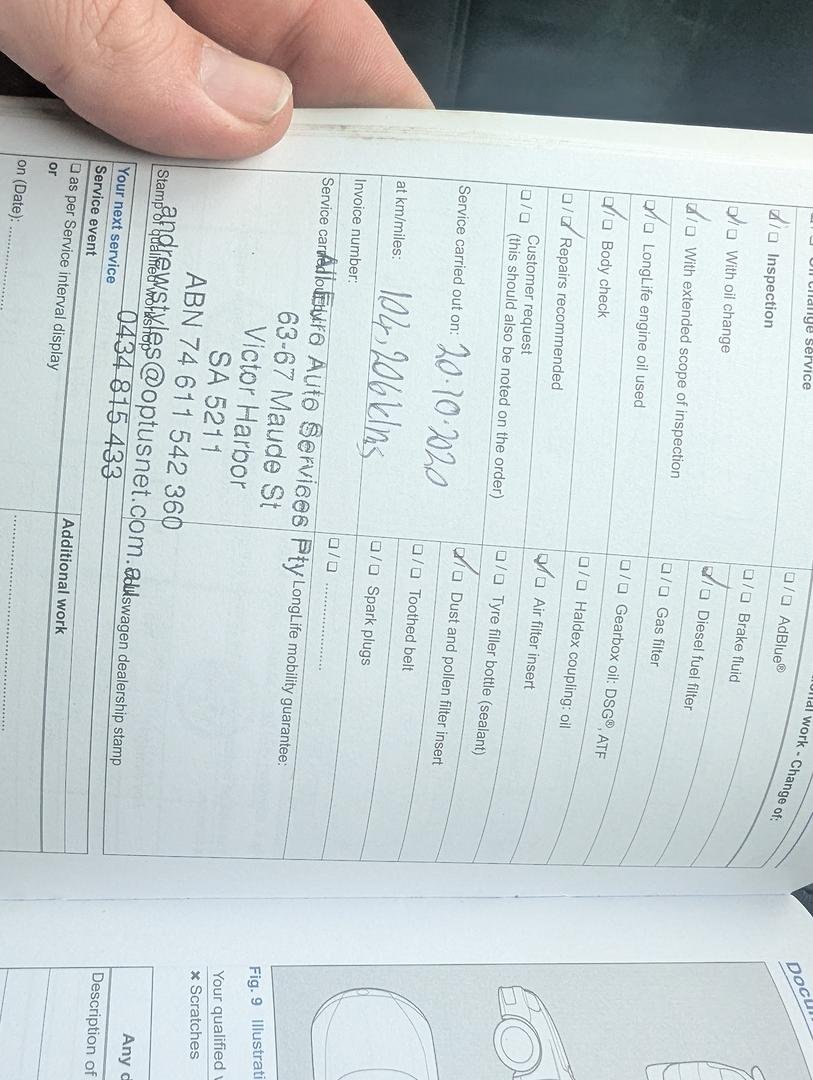 Oil change service
☑/☐ Inspection
☑/☐ With oil change
☑/☐ With extended scope of inspection
☑/☐ LongLife engine oil used
☑/☐ Body check
☐/☑ Repairs recommended
☐/☐ Customer request
(this should also be noted on the order)
Service carried out on: 20.10.2020
at km/miles: 104,206klms
Invoice number:
Service carried out by:
All Euro Auto Services Pty
63-67 Maude St
Victor Harbor
SA 5211
ABN 74 611 542 360
andrewstyles@optusnet.com.au
0434 815 433
Stamp of qualified workshop
work - Change of:
☐/☐ AdBlue®
☐/☐ Brake fluid
☑/☐ Diesel fuel filter
☐/☐ Gas filter
☐/☐ Gearbox oil: DSG®, ATF
☐/☐ Haldex coupling: oil
☑/☐ Air filter insert
☐/☐ Tyre filler bottle (sealant)
☑/☐ Dust and pollen filter insert
☐/☐ Toothed belt
☐/☐ Spark plugs
☐/☐ ....................
LongLife mobility guarantee:
dealership stamp
Your next service
Service event
☐ as per Service interval display
or
on (Date): ....................
Additional work
....................
Fig. 9
Your qualified
× Scratches
Any
Description of